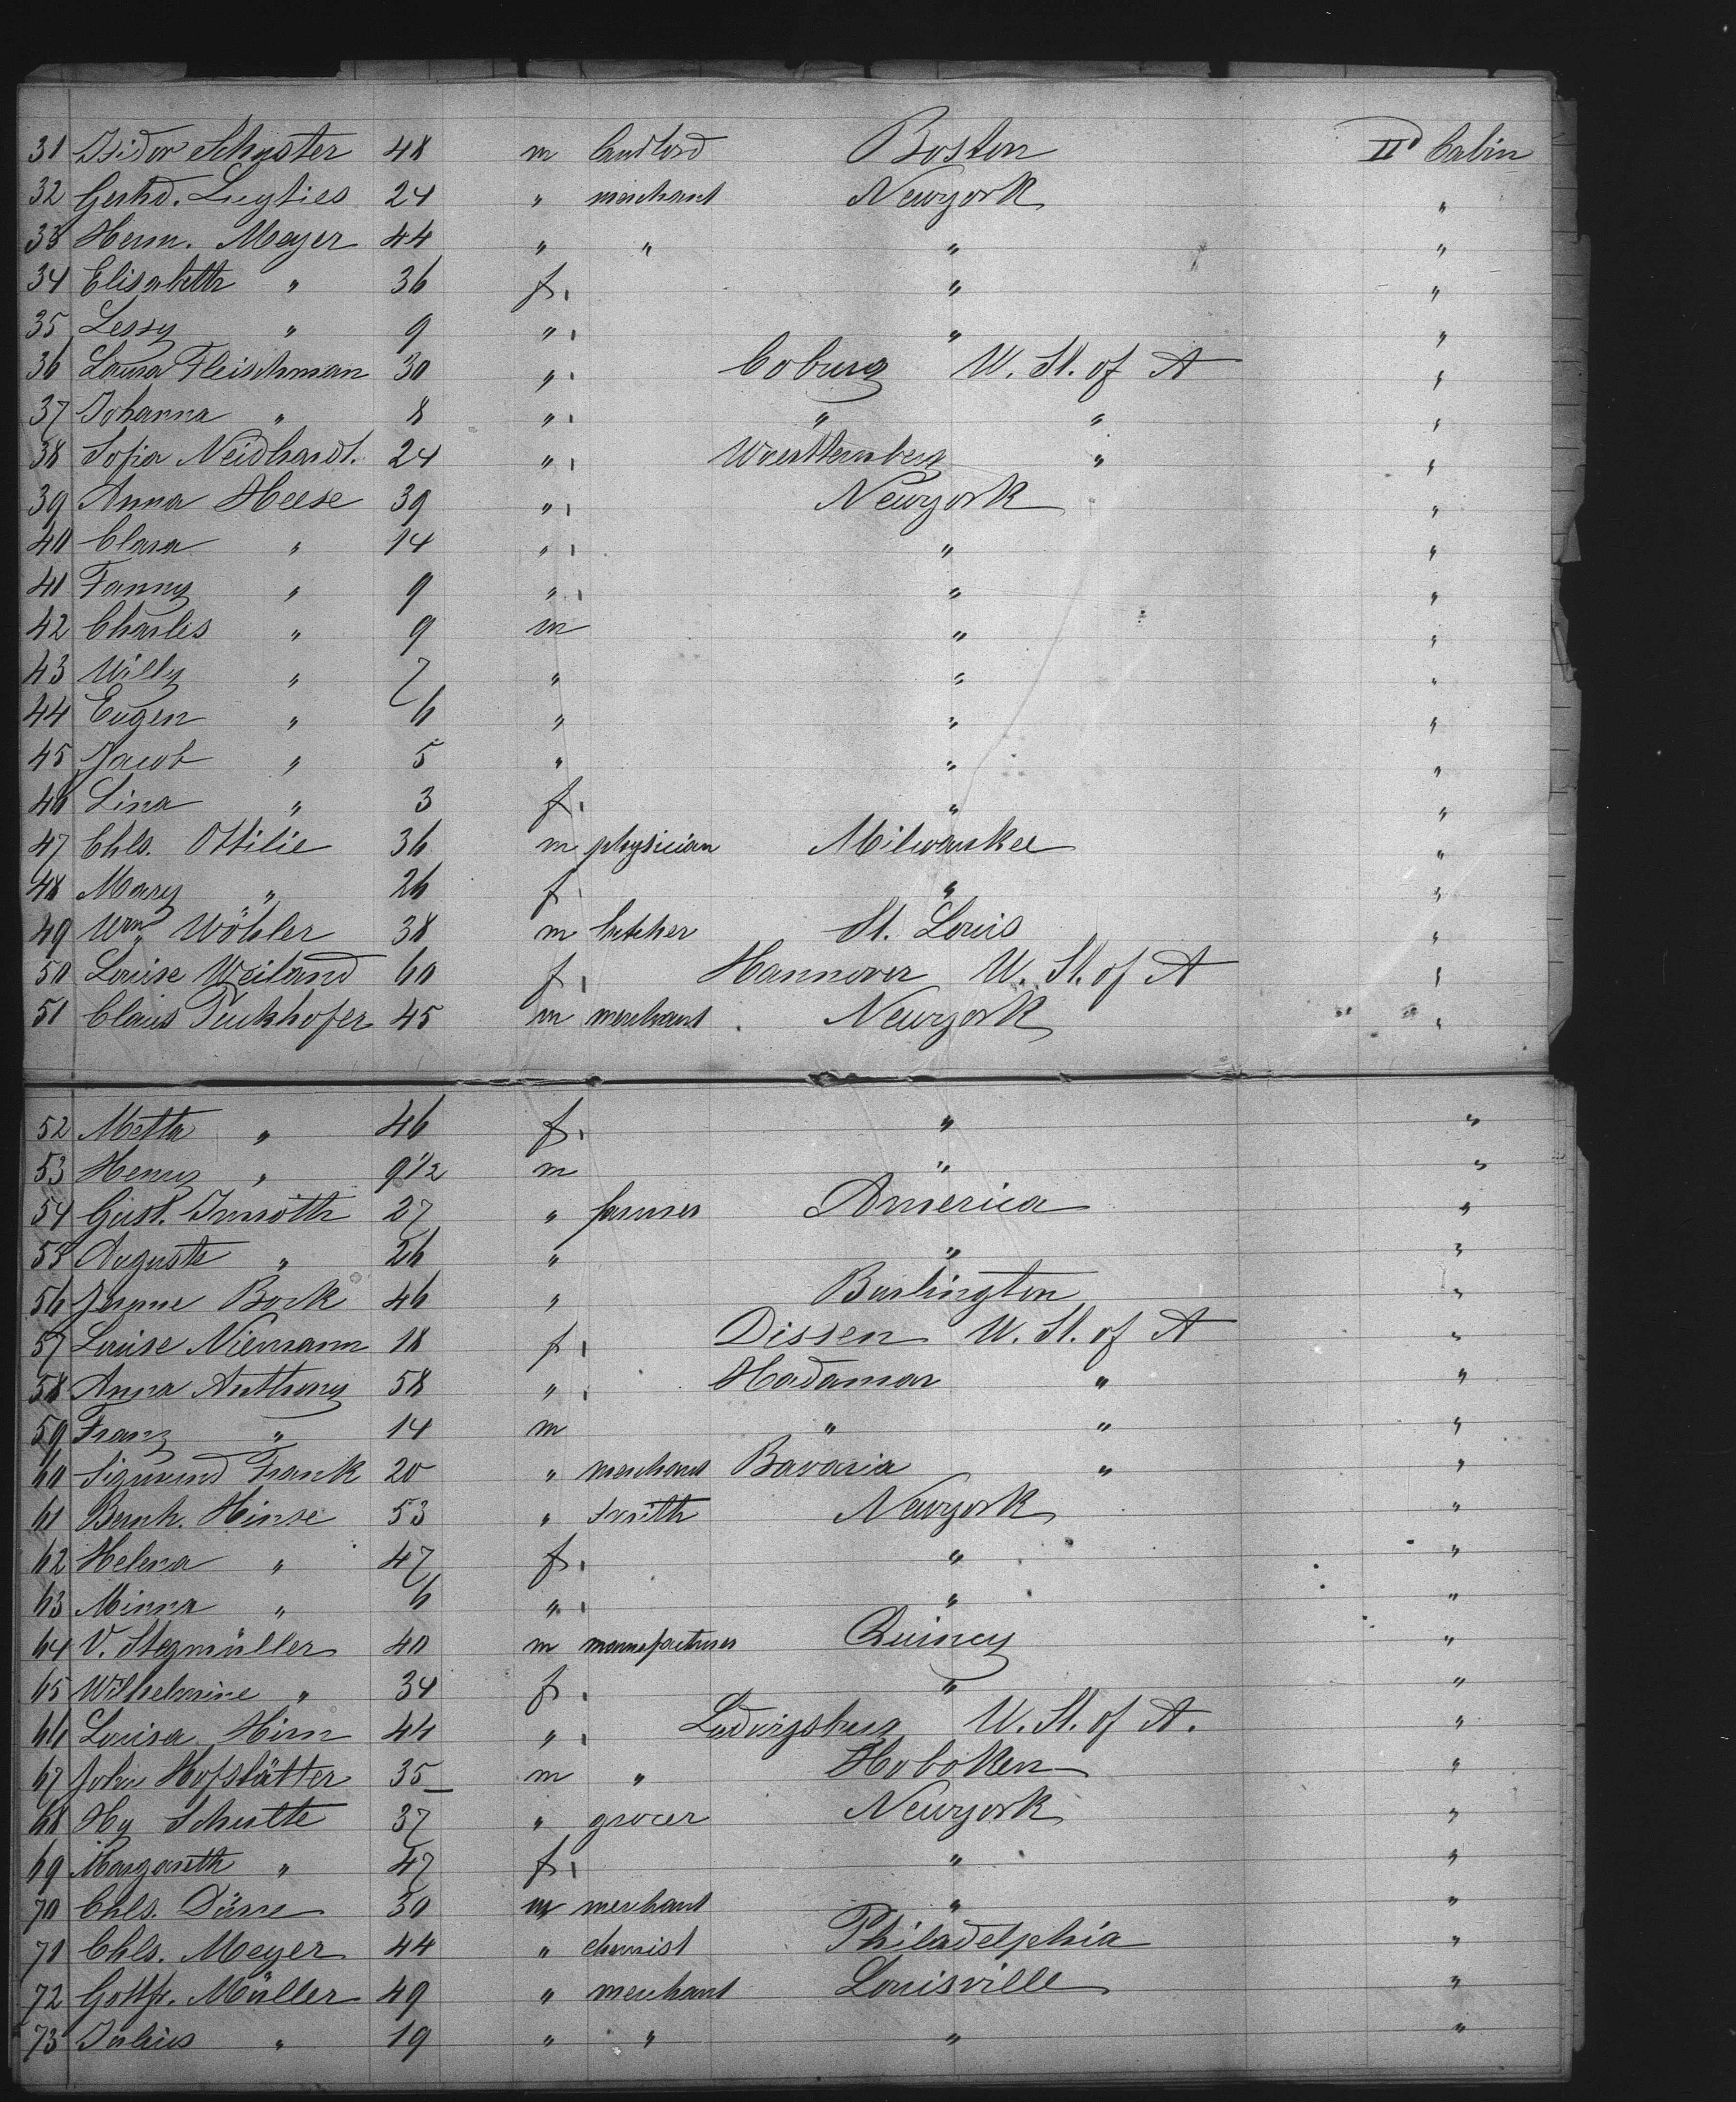 31 Isidor Schuster 48 m landlord Boston IId Cabin
32 Gerhd. Lugties 24 " merchant Newyork "
33 Herm. Meyer 44 " " " "
34 Elisabeth " 36 f. " "
35 Lessy " 9 " " "
36 Laura Fleischman 30 " Coburg U. St. of A "
37 Johanna " 8 " " " "
38 Sofia Neidhardt. 24 " Wuerttemberg " "
39 Anna Heese 39 " Newyork "
40 Clara " 14 " " "
41 Fanny " 9 " " "
42 Charles " 9 m " "
43 Willy " 7 " " "
44 Eugen " 6 " " "
45 Jacob " 5 " " "
46 Lina " 3 f. " "
47 Chls. Ottilie 36 m physician Milwaukee "
48 Mary " 26 f " "
49 Wm. Wöhler 38 m butcher St. Louis "
50 Louise Weiland 60 f Hannover U. St. of A "
51 Claus 45 m merchant Newyork "
52 Metta " 46 f. " "
53 Henry " 9 1/2 m " "
54 Gust. Imroth 27 " farmer America "
55 Auguste " 26 " " "
56 Bock 46 " Burlington "
57 Louise Niemann 18 f Dissen U. St. of A "
58 Anna Anthony 58 " Hadamar " "
59 Franz " 14 m " " "
60 Sigmund Frank 20 " merchant Bavaria " "
61 Bernh. Hinse 53 " smith Newyork "
62 Helena " 47 f. " "
63 Minna " 6 " " "
64 V. Stegmüller 40 m mannufacturer Quincy "
65 Wilhelmine " 34 f. " "
66 Louisa Hirn 44 " Ludwigsburg U. St. of A. "
67 John Hofstätter 35 m " Hoboken "
68 Hy Schulte 37 " grocer Newyork "
69 Margareth " 47 f " "
70 Chls. 30 m merchant " "
71 Chls. Meyer 44 " chemist Philadelphia "
72 Gottfr. Müller 49 " merchant Louisville "
73 Julius " 19 " " " "